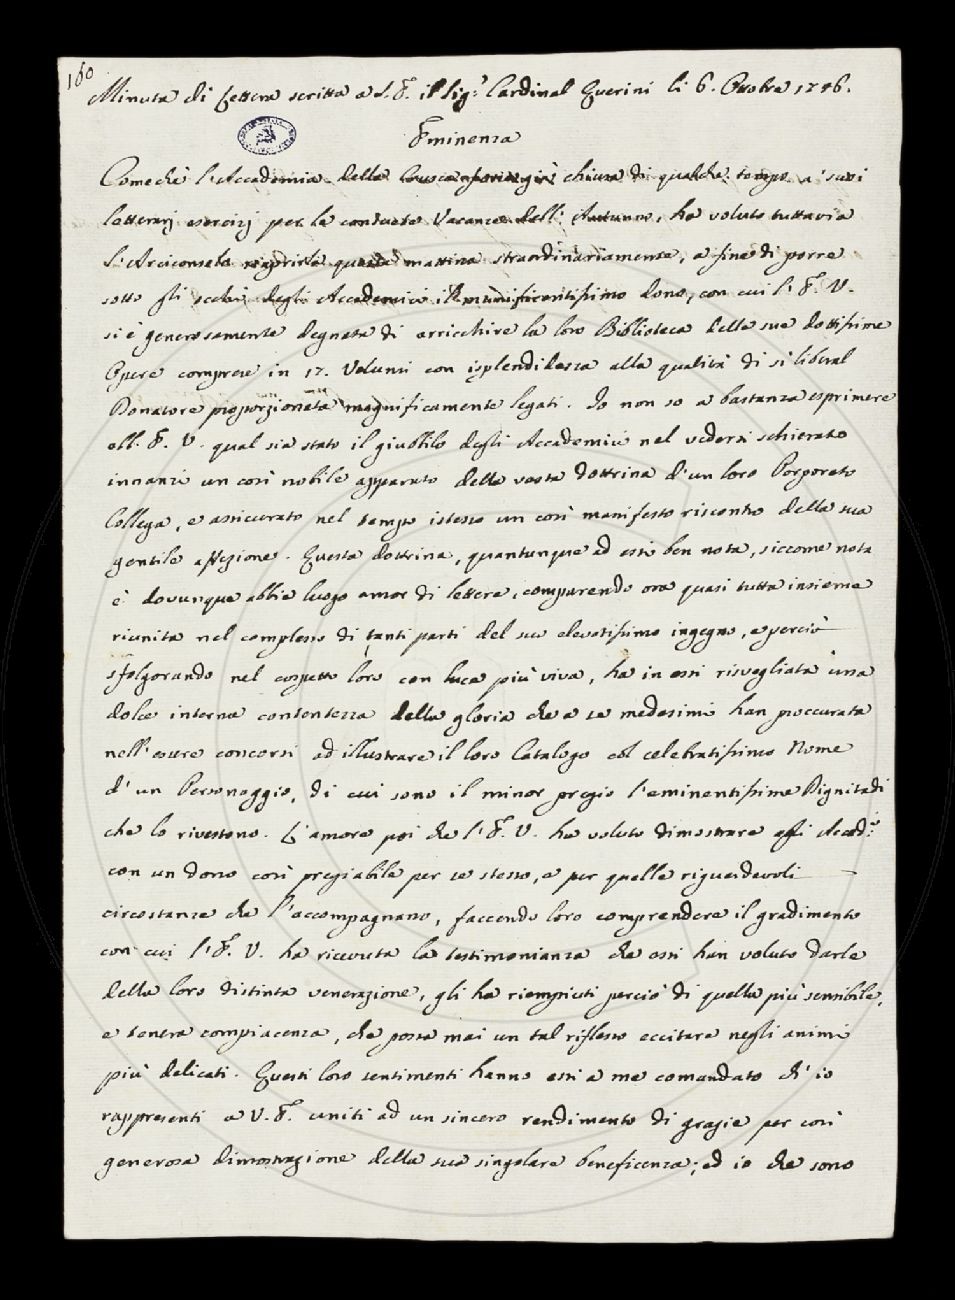 160
Minuta di Lettera scritta a S. E. il Sig.r Cardinal Querini li 6. Ottobre 1746.
Eminenza
Comechè l'Accademia della Crusca già chiusa di qualche tempo a' suoi
letterarj esercizj per le consuete Vacanze dell' Autunno, ha voluto tuttavia
l'Arciconsolo riaprirla questa mattina straordinariamente, a fine di porre
sotto gli occhi degli Accademici il munificentissimo dono, con cui l'E. V.
si è generosamente degnata di arricchire la loro Biblioteca delle sue dottissime
Opere comprese in 17. Volumi con isplendidezza alla qualità di sì liberal
Donatore proporzionata magnificamente legati. Io non so a bastanza esprimere
all' E. V. qual sia stato il giubbilo degli Accademici nel vedersi schierato
innanzi un così nobile apparato della vasta dottrina d'un loro Porporato
Collega, e assicurato nel tempo istesso un così manifesto riscontro della sua
gentile affezione. Questa dottrina, quantunque ad essi ben nota, siccome nota
è dovunque abbia luogo amor di lettere, comparendo ora quasi tutta insieme
riunita nel complesso di tanti parti del suo elevatissimo ingegno, e perciò
sfolgorando nel cospetto loro con luce più viva, ha in essi risvegliata una
dolce interna contentezza della gloria che a se medesimi han proccurata
nell'essere concorsi ad illustrare il loro Catalogo col celebratissimo Nome
d'un Personaggio, di cui sono il minor pregio l'eminentissime Dignità di
che lo rivestono. L'amore poi che l'E. V. ha voluto dimostrare agli Accad.ci
con un dono così pregiabile per se stesso, e per quelle riguardevoli
circostanze che l'accompagnano, faccendo loro comprendere il gradimento
con cui l'E. V. ha ricevuta la testimonianza che essi han voluto darle
della loro distinta venerazione, gli ha riempiuti perciò di quella più sensibile,
e tenera compiacenza, che possa mai un tal riflesso eccitare negli animi
più delicati. Questi loro sentimenti hanno essi a me comandato ch' io
rappresenti a V. E. uniti ad un sincero rendimento di grazie per così
generosa dimostrazione della sua singolare beneficenza; ed io che sono